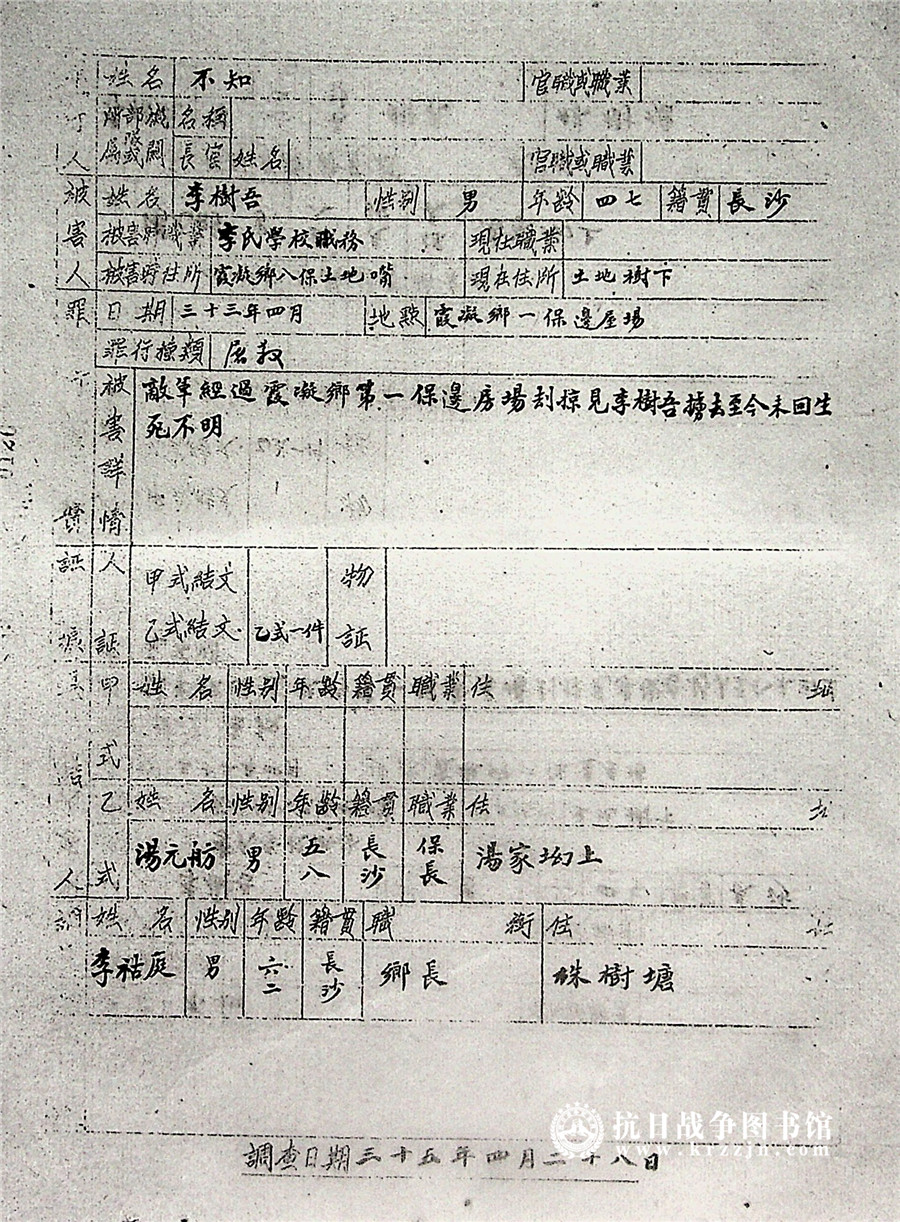 姓名 不知 官職或職業
人 所屬部隊或機關 名稱
長官 姓名 官職或職業
被害人 姓名 李樹吾 性别 男 年齡 四七 籍貫 長沙
被害時職業 李氏學校職務 現在職業
被害時住所 霞凝鄉八保土地嘴 現在住所 土地樹下
罪 日期 三十三年四月 地點 霞凝鄉一保邊屋場
罪行種類 屠杀
被害詳情 敵軍經過霞凝鄉第一保邊房場刦掠見李樹吾擄去至今未回生
死不明
人証 甲式結文 物証
乙式結文 乙式一件
甲式 姓名 性别 年齡 籍貫 職業 住
乙式 姓名 性别 年齡 籍貫 職業 住
湯元舫 男 五八 長沙 保長 湯家坳上
人
姓名 性别 年齡 籍貫 職銜 住
李祜庭 男 六二 長沙 鄉長 株樹塘
調查日期三十五年四月二十八日
抗日战争图书馆
www.krzzjn.com